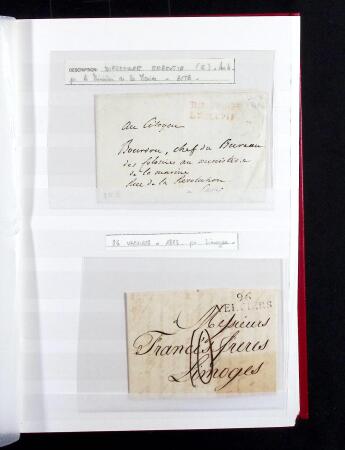 DESCRIPTION DIRECTOIRE EXECUTIF
EXECUTIF
Au Citoyen
Boursou, chef du Bureau
des colonies au ministère
de la marine
Rue de la Révolution
Paris
96 VERVIERS 1813 pr Limoges
96
VERVIERS
Messieurs
Francés frères
Limoges